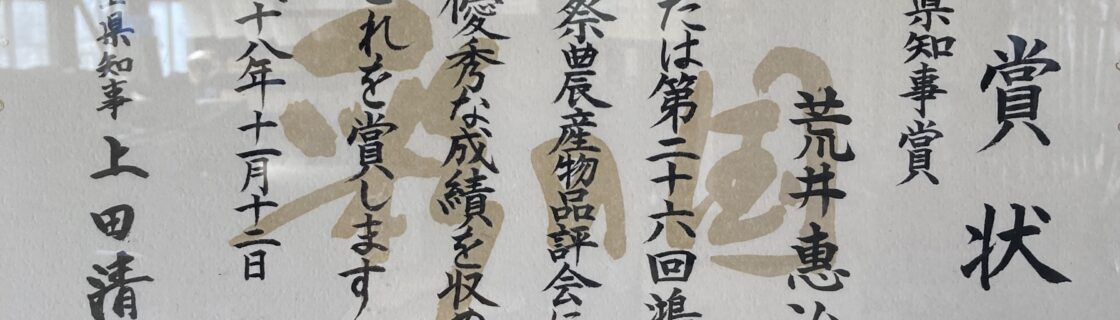 賞状
県知事賞
荒井惠治
たは第二十六回鴻
祭農産物品評会に
優秀な成績を収め
これを賞します
十八年十一月十二日
県知事 上田清